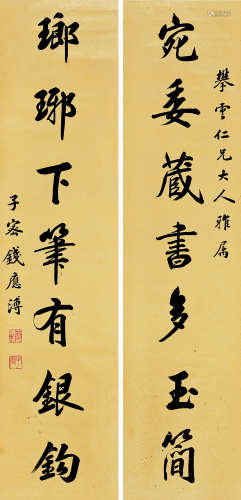 攀雲仁兄大人雅屬
宛委藏書多玉簡
瑯琊下筆有銀鈎
子容錢應溥